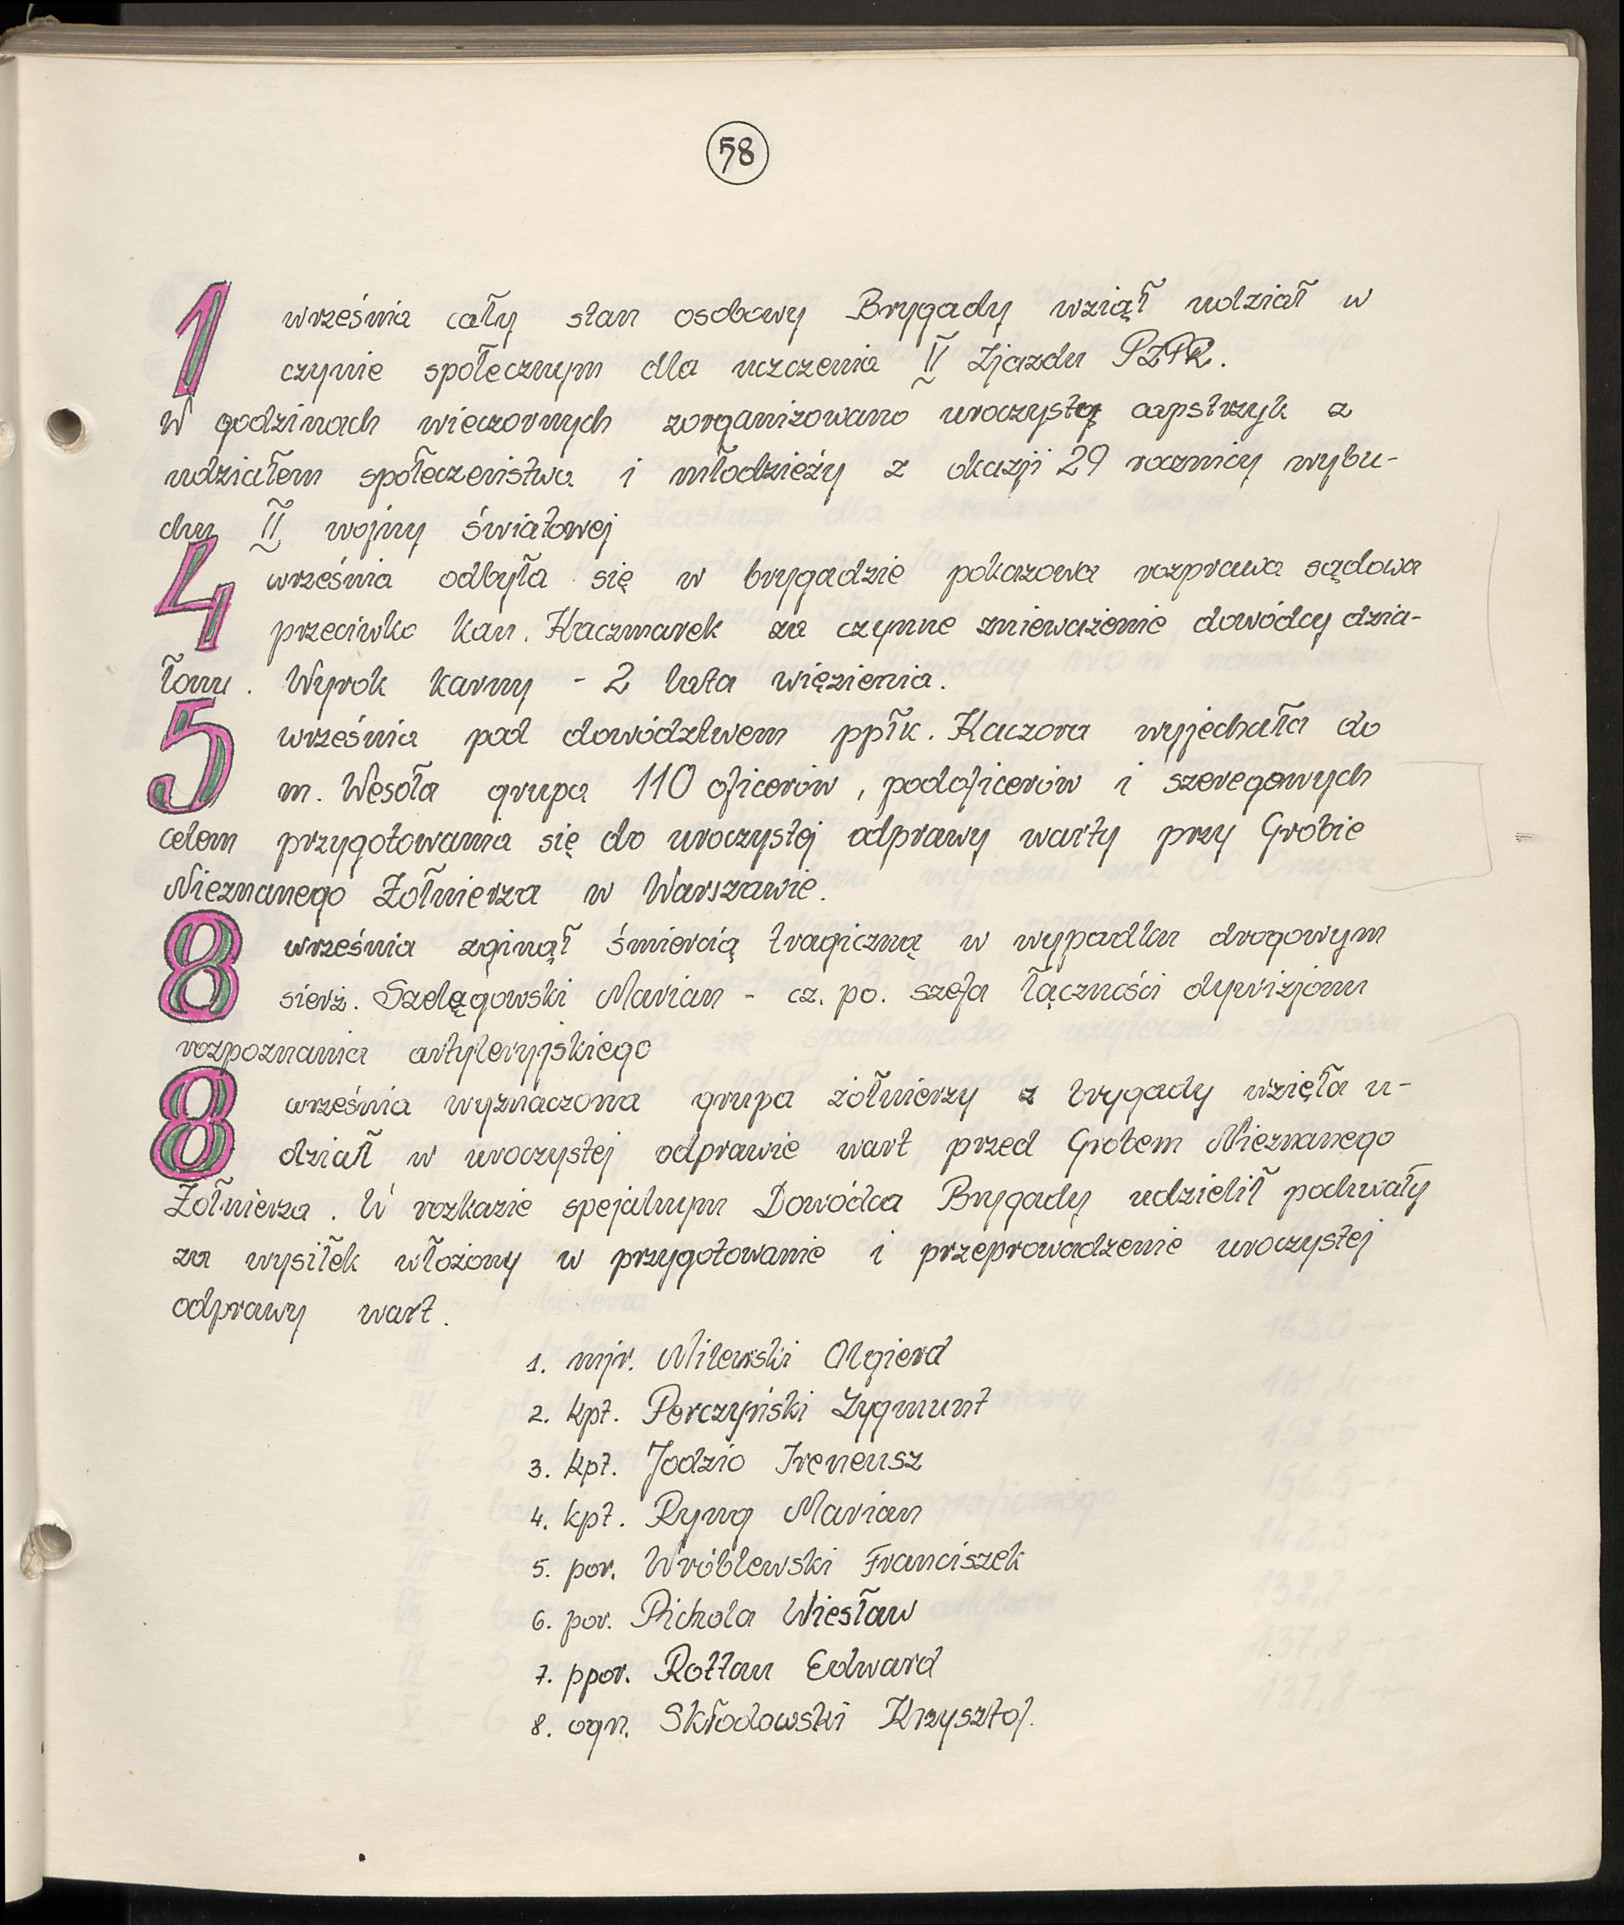 58
1 września cały stan osobowy Brygady wziął udział w
czynie społecznym dla uczczenia V Zjazdu PZPR.
W godzinach wieczornych zorganizowano uroczysty capstrzyk z
udziałem społeczeństwa i młodzieży z okazji 29 rocznicy wybu-
chu II wojny światowej
4 września odbyła się w brygadzie pokazowa rozprawa sądowa
przeciwko kan. Kaczmarek za czynne znieważenie dowódcy dzia-
łonu. Wyrok karny - 2 lata więzienia.
5 września pod dowództwem ppłk. Kaczora wyjechała do
m. Wesoła grupa 110 oficerów, podoficerów i szeregowych
celem przygotowania się do uroczystej odprawy warty przy Grobie
Nieznanego Żołnierza w Warszawie.
8 września zginął śmiercią tragiczną w wypadku drogowym
sierż. Szelągowski Marian - cz. po. szefa łączności dywizjonu
rozpoznania artyleryjskiego
8 września wyznaczona grupa żołnierzy z brygady wzięła u-
dział w uroczystej odprawie wart przed Grobem Nieznanego
Żołnierza. W rozkazie spejalnym Dowódca Brygady udzielił pochwały
za wysiłek włożony w przygotowanie i przeprowadzenie uroczystej
odprawy wart.
1. mjr. Milewski Olgierd
2. kpt. Porczyński Zygmunt
3. kpt. Jodzio Ireneusz
4. kpt. Ryng Marian
5. por. Wróblewski Franciszek
6. por. Pichola Wiesław
7. ppor. Rottau Edward
8. ogn. Skłodowski Krzysztof.